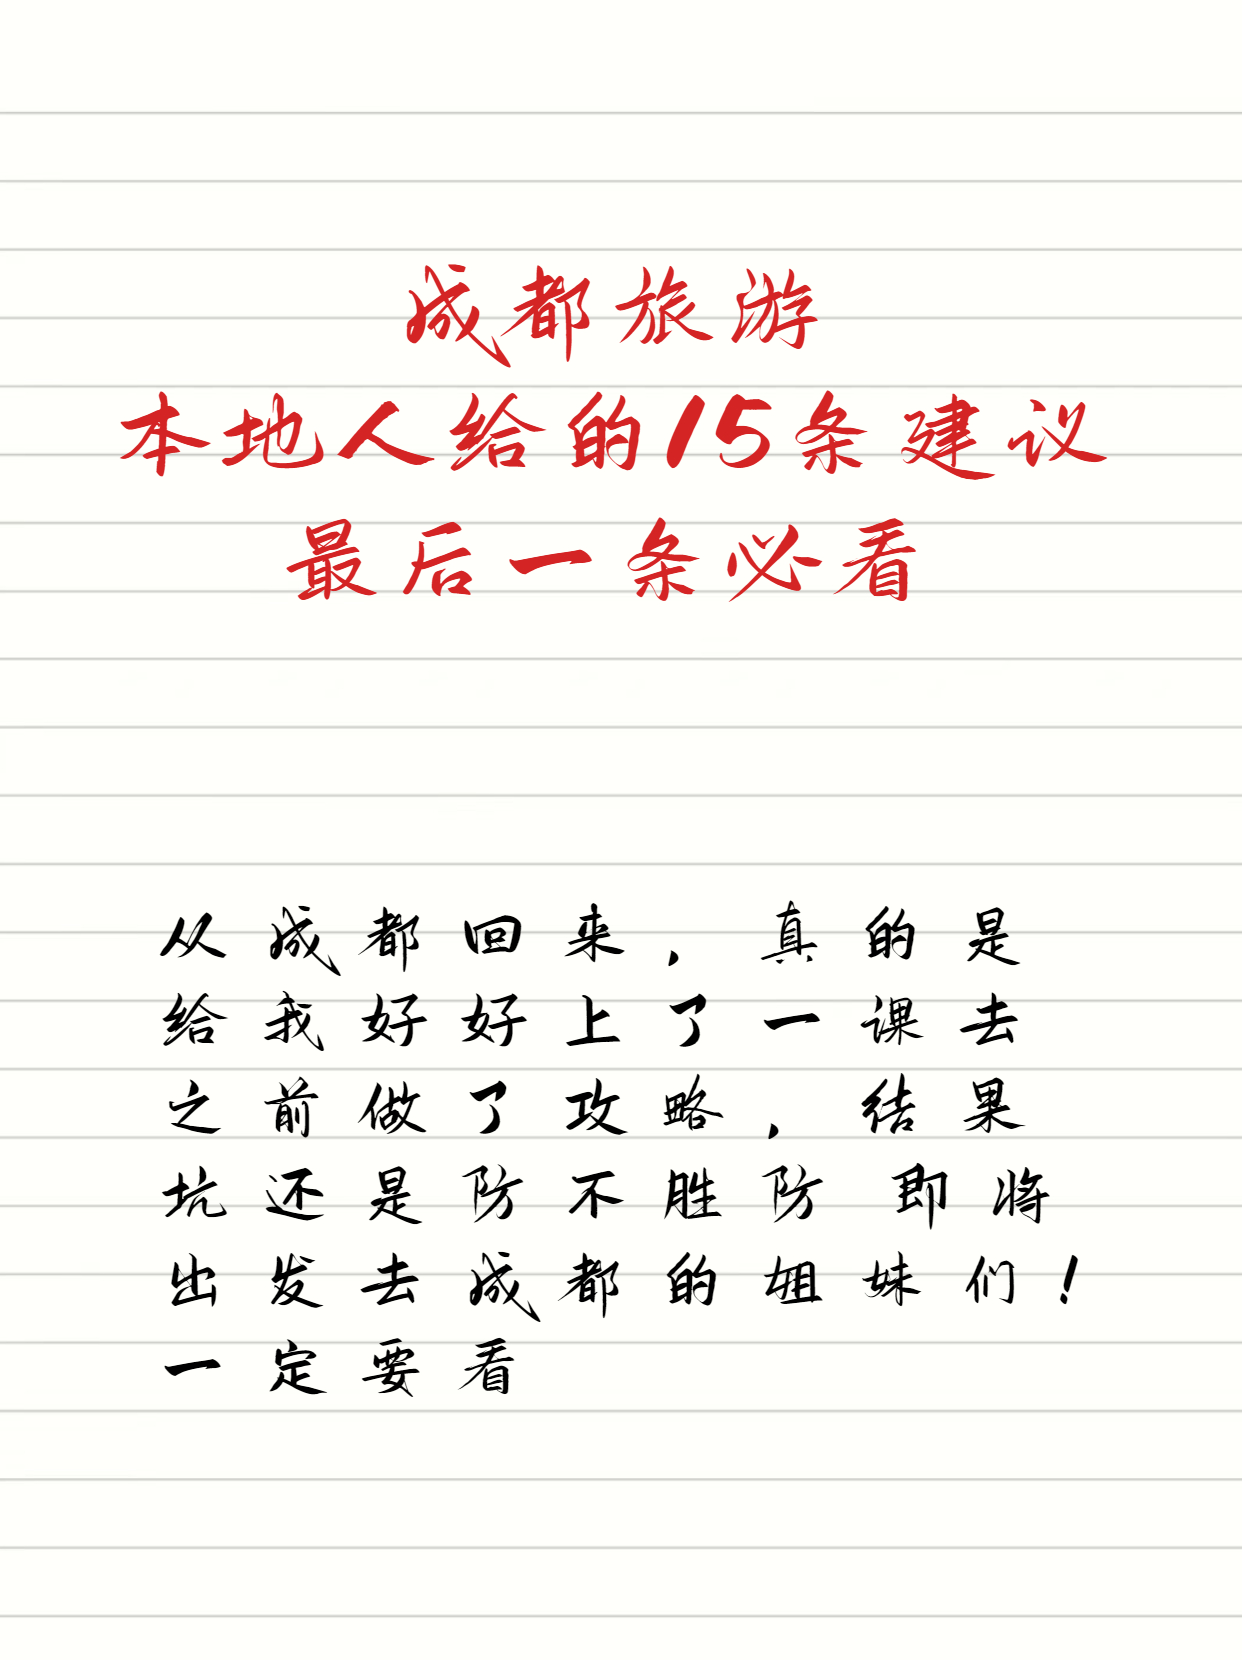 成都旅游
本地人给的15条建议
最后一条必看
从成都回来，真的是
给我好好上了一课去
之前做了攻略，结果
坑还是防不胜防 即将
出发去成都的姐妹们！
一定要看